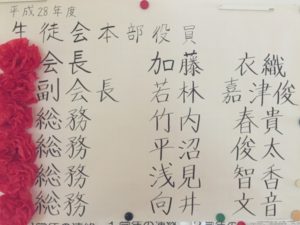 平成28年度
生徒会本部役員
会長 加藤 衣織
副会長 若林 嘉津俊
総務 竹内 春貴
総務 平沼 俊太
総務 浅見 智香
総務 向井 文音